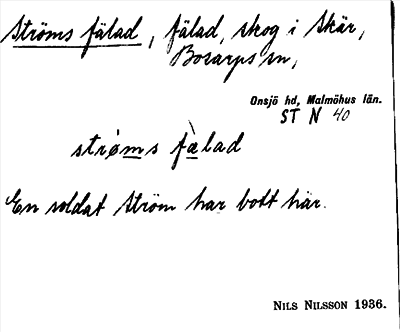 Ströms fälad, fälad, skog i Skär,
Bosarps sn,
Onsjö hd, Malmöhus län.
ST N 40
strø̀m̲s fæ̲̀lad
En soldat Ström har bott här.
NILS NILSSON 1936.